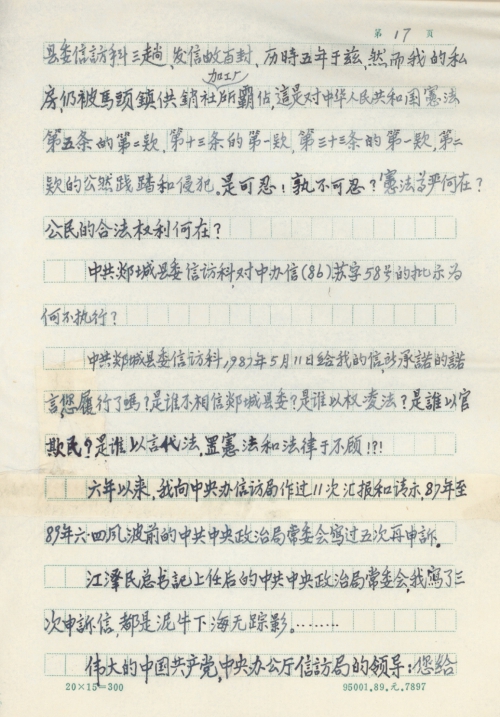 第 17 页
县委信訪科三趟、发信数百封、历時五年于兹,然而我的私
加工厂
房,仍被馬頭鎮供銷社所霸佔,這是对中华人民共和国憲法
第五条的第二款,第十三条的第一款,第三十三条的第一款,第二
款的公然践踏和侵犯。是可忍!孰不可忍?憲法尊严何在?
公民的合法权利何在?
中共郯城县委信訪科,对中办信(86)苏字58号的批示为
何不执行?
中共郯城县委信訪科,1987年5月11日给我的信,所承諾的諾
言,您履行了嗎?是谁不相信郯城县委?是谁以权凌法?是誰以官
欺民?是谁以言代法,置憲法和法律于不顾!?!
六年以来,我向中央办信訪局作过11次汇报和请示,87年至
89年六·四风波前的中共中央政治局常委会寫过五次再申訴。
江澤民总书記上任后的中共中央政治局常委会,我寫了三
次申訴信,都是泥牛下海无踪影。………
偉大的中国共产党,中央办公厅信訪局的领导:您给
20×15=300
95001.89.元.7897